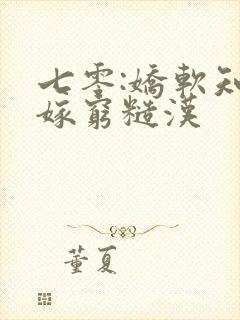 七零:嬌軟知
嫁窮糙漢
董夏